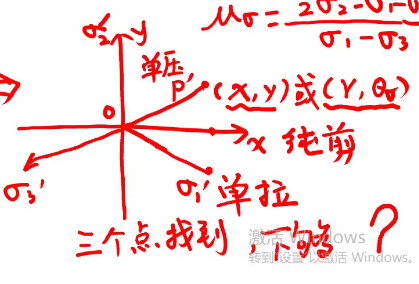 μσ = 2σ2-σ1-σ
σ1-σ3
σ2' y
单压
P' (x,y)或(γ,θσ)
0
x 纯剪
σ3' σ1' 单拉
三个点找到，不够？
激活 Windows
转到"设置"以激活 Windows。